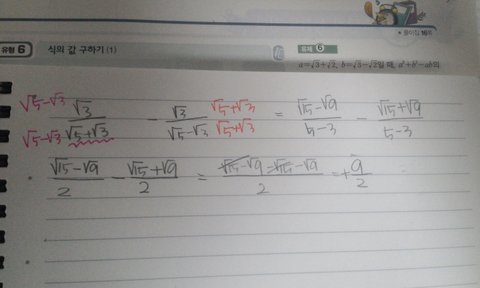 풀이집 16쪽
유형 6 식의 값 구하기 (1)
유제 6
a=√3+√2, b=√3-√2일 때, a²+b²-ab의
√5-√3 √3/(√5+√3) - √3/(√5-√3) √5+√3 = (√15-√9)/(5-3) - (√15+√9)/(5-3)
√5-√3 √5+√3
(√15-√9)/2 - (√15+√9)/2 = (√15-√9-√15-√9)/2 = + 9/2